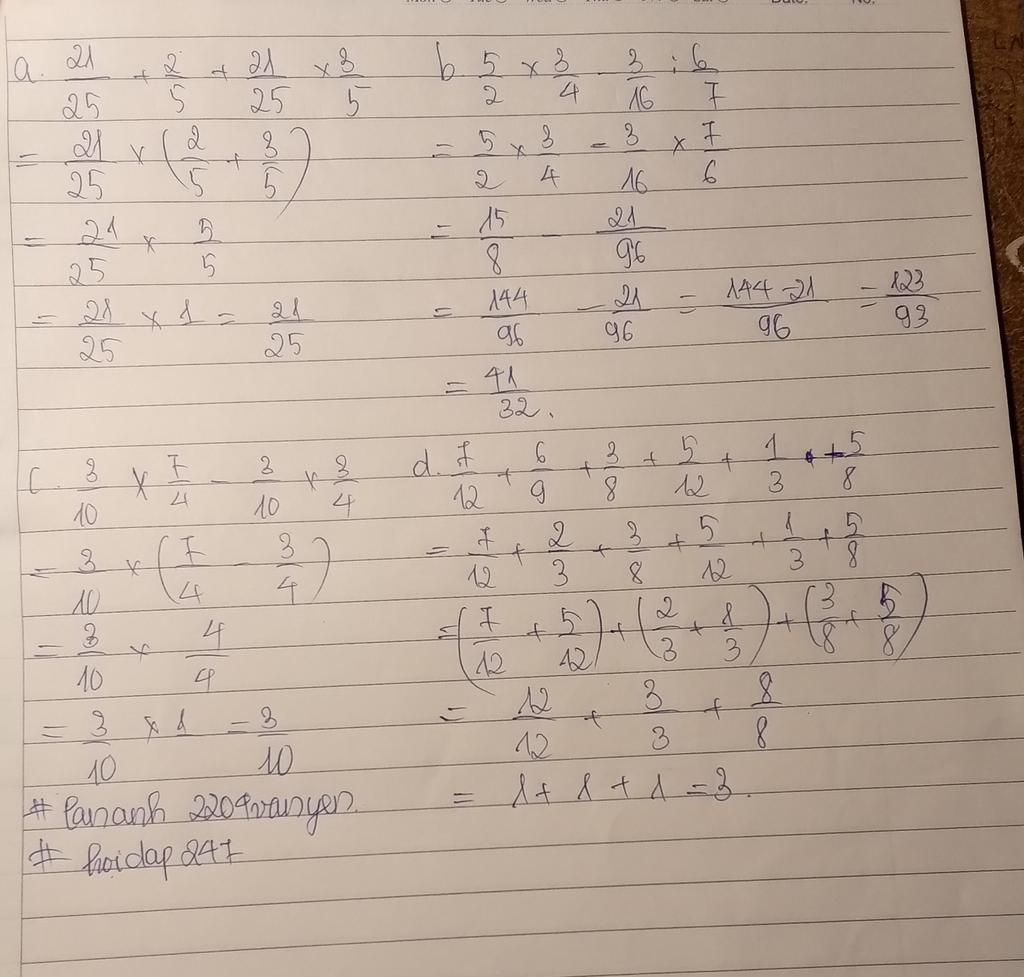 a. 21/25 + 2/5 + 21/25 × 3/5
= 21/25 × (2/5 + 3/5)
= 21/25 × 5/5
= 21/25 × 1 = 21/25
b. 5/2 × 3/4 - 3/16 : 6/7
= 5/2 × 3/4 - 3/16 × 7/6
= 15/8 - 21/96
= 144/96 - 21/96 = 144-21/96 = 123/93
= 41/32.
c. 3/10 × 7/4 - 3/10 × 3/4
= 3/10 × (7/4 - 3/4)
= 3/10 × 4/4
= 3/10 × 1 = 3/10
d. 7/12 + 6/9 + 3/8 + 5/12 + 1/3 + 5/8
= 7/12 + 2/3 + 3/8 + 5/12 + 1/3 + 5/8
= (7/12 + 5/12) + (2/3 + 1/3) + (3/8 + 5/8)
= 12/12 + 3/3 + 8/8
= 1 + 1 + 1 = 3.
# hoidap 247